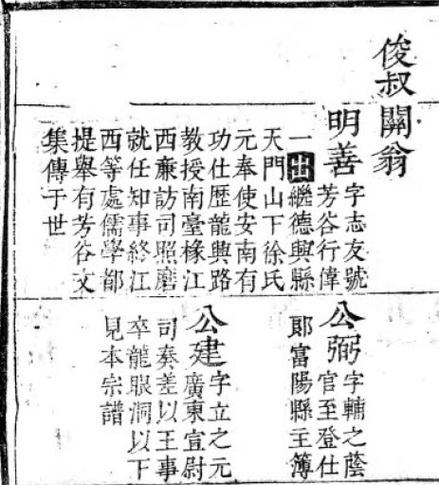 俊叔關翁
明善字志友號
芳谷行偉
一出繼德興縣
天門山下徐氏
元奉使安南有
功仕歷龍興路
教授南臺椽江
西亷訪司照磨
就任知事終江
西等處儒學都
提舉有芳谷文
集傳于世
公弼字輔之蔭
官至登仕
郎富陽縣主簿
公建字立之元
廣東宣尉
司奏差以王事
卒龍眼洞以下
見本宗譜